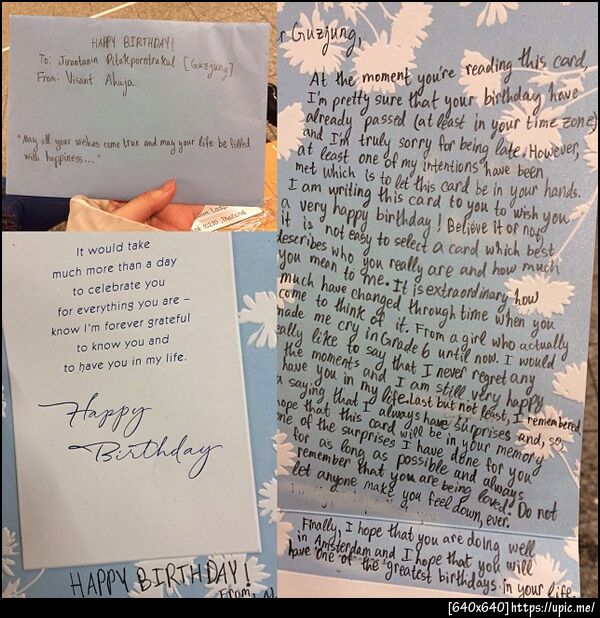 HAPPY BIRTHDAY!
To: Jirantanin Pitakporntrakul [Guzjung]
From: Visant Ahuja
"May all your wishes come true and may your life be filled
with happiness..."
10230 Thailand
It would take
much more than a day
to celebrate you
for everything you are –
know I'm forever grateful
to know you and
to have you in my life.
Happy
Birthday
HAPPY BIRTHDAY!
From,
r Guzjung,
At the moment you're reading this card,
I'm pretty sure that your birthday have
already passed (at least in your time zone)
and I'm truly sorry for being late. However,
at least one of my intentions have been
met which is to let this card be in your hands.
I am writing this card to you to wish you
a very happy birthday! Believe it or not,
it is not easy to select a card which best
describes who you really are and how much
you mean to me. It is extraordinary how
much have changed through time when you
come to think of it. From a girl who actually
made me cry in Grade 6 until now. I would
eally like to say that I never regret any
the moments and I am still very happy
have you in my life. Last but not least, I remembered
a saying that I always have surprises and, so,
ope that this card will be in your memory
one of the surprises I have done for you
for as long as possible and always
remember that you are being loved. Do not
let anyone make you feel down, ever.
Finally, I hope that you are doing well
in Amsterdam and I hope that you will
have one of the greatest birthdays in your life.
[640x640] https://upic.me/